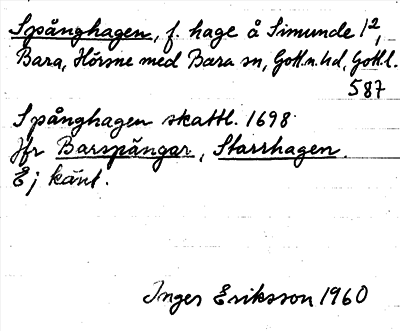 Spånghagen, f. hage å Simunde 1²,
Bara, Hörsne med Bara sn, Gotl.n.hd, Gotl.l.
587
Spånghagen skattl. 1698.
Jfr Barspängar, Starrhagen.
Ej känt.
Inger Eriksson 1960